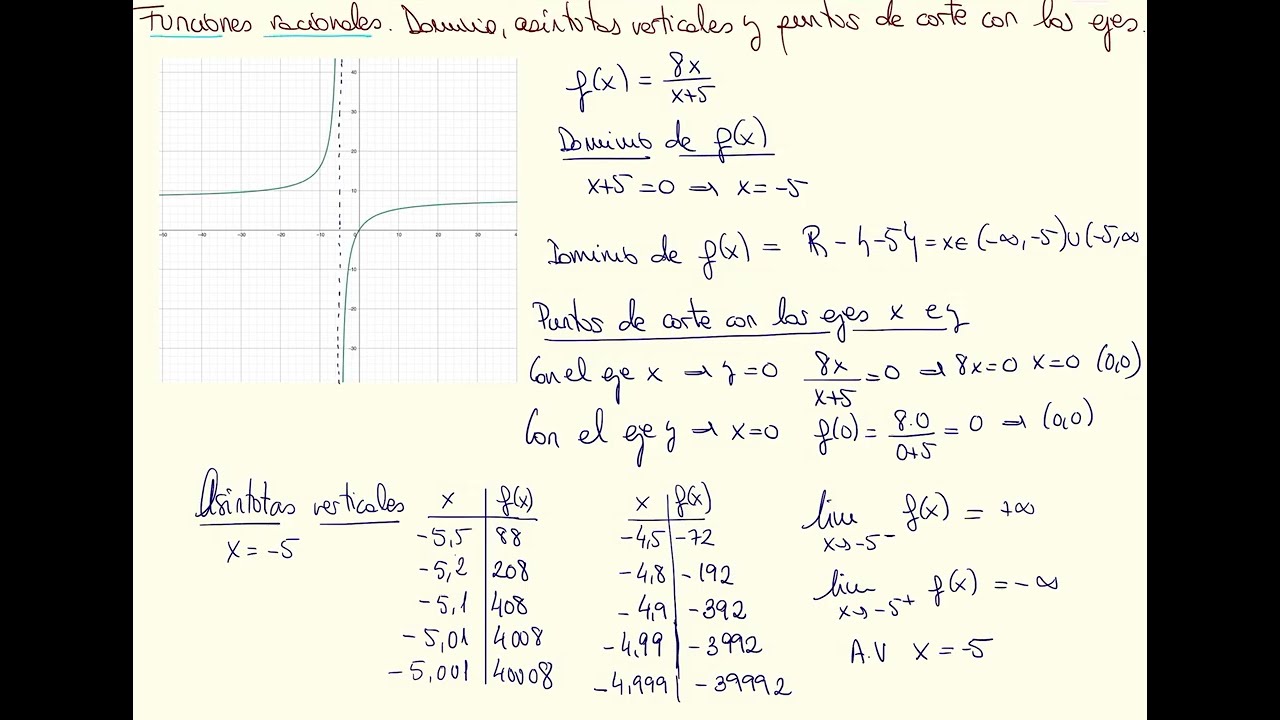 Funciones racionales. Dominio, asíntotas verticales y puntos de corte con los ejes.
f(x) = 8x/(x+5)
Dominio de f(x)
x+5=0 → x=-5
Dominio de f(x) = R - {-5} = x∈(-∞,-5)∪(-5,∞
Puntos de corte con los ejes x e y
Con el eje x → y=0 8x/(x+5)=0 → 8x=0 x=0 (0,0)
Con el eje y → x=0 f(0)= 8.0/(0+5) = 0 → (0,0)
40
30
20
10
-50 -40 -30 -20 -10 0 10 20 30 4
-10
-20
-30
Asíntotas verticales
x=-5
x f(x)
-5,5 88
-5,2 208
-5,1 408
-5,01 4008
-5,001 40008
x f(x)
-4,5 -72
-4,8 -192
-4,9 -392
-4,99 -3992
-4,999 -39992
lim x→-5⁻ f(x) = +∞
lim x→-5⁺ f(x) = -∞
A.V x=-5